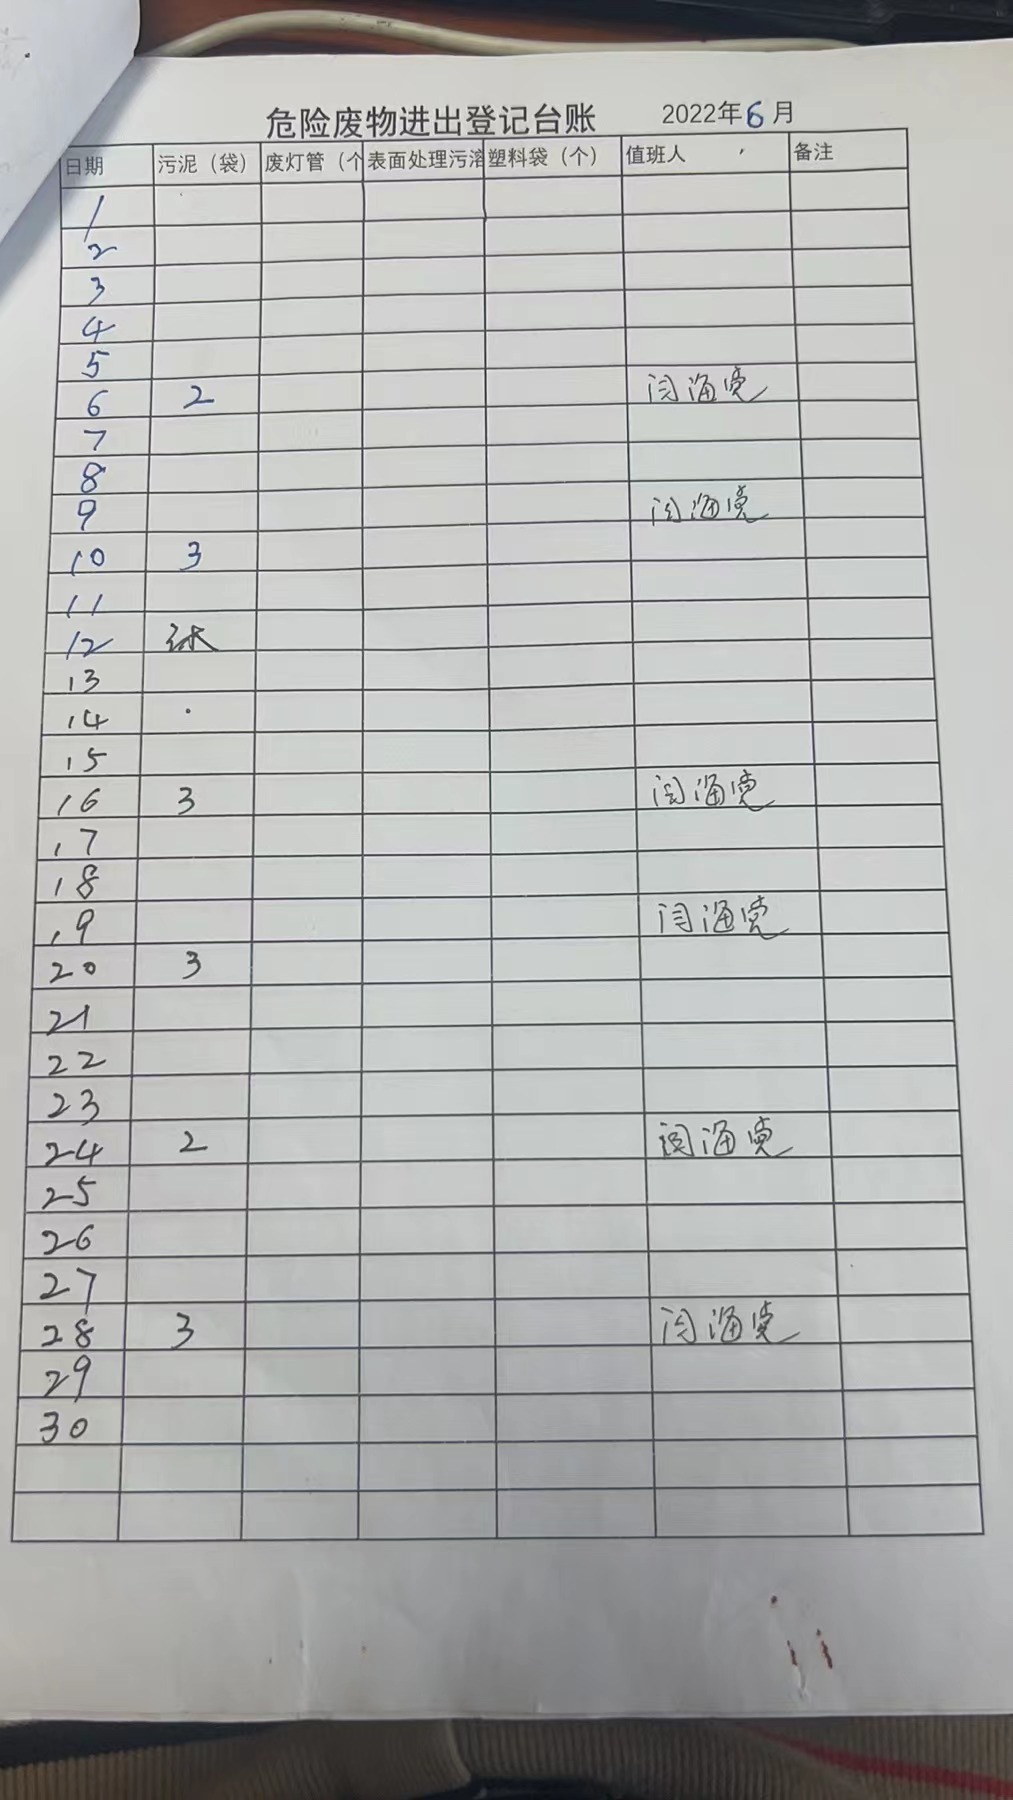 危险废物进出登记台账 2022年6月
日期 污泥（袋） 废灯管（个 表面处理污溶 塑料袋（个） 值班人 备注
1
2
3
4
5
6 2 闫海宽
7
8
9 闫海宽
10 3
11
12 休
13
14
15
16 3 闫海宽
17
18
19 闫海宽
20 3
21
22
23
24 2 闫海宽
25
26
27
28 3 闫海宽
29
30